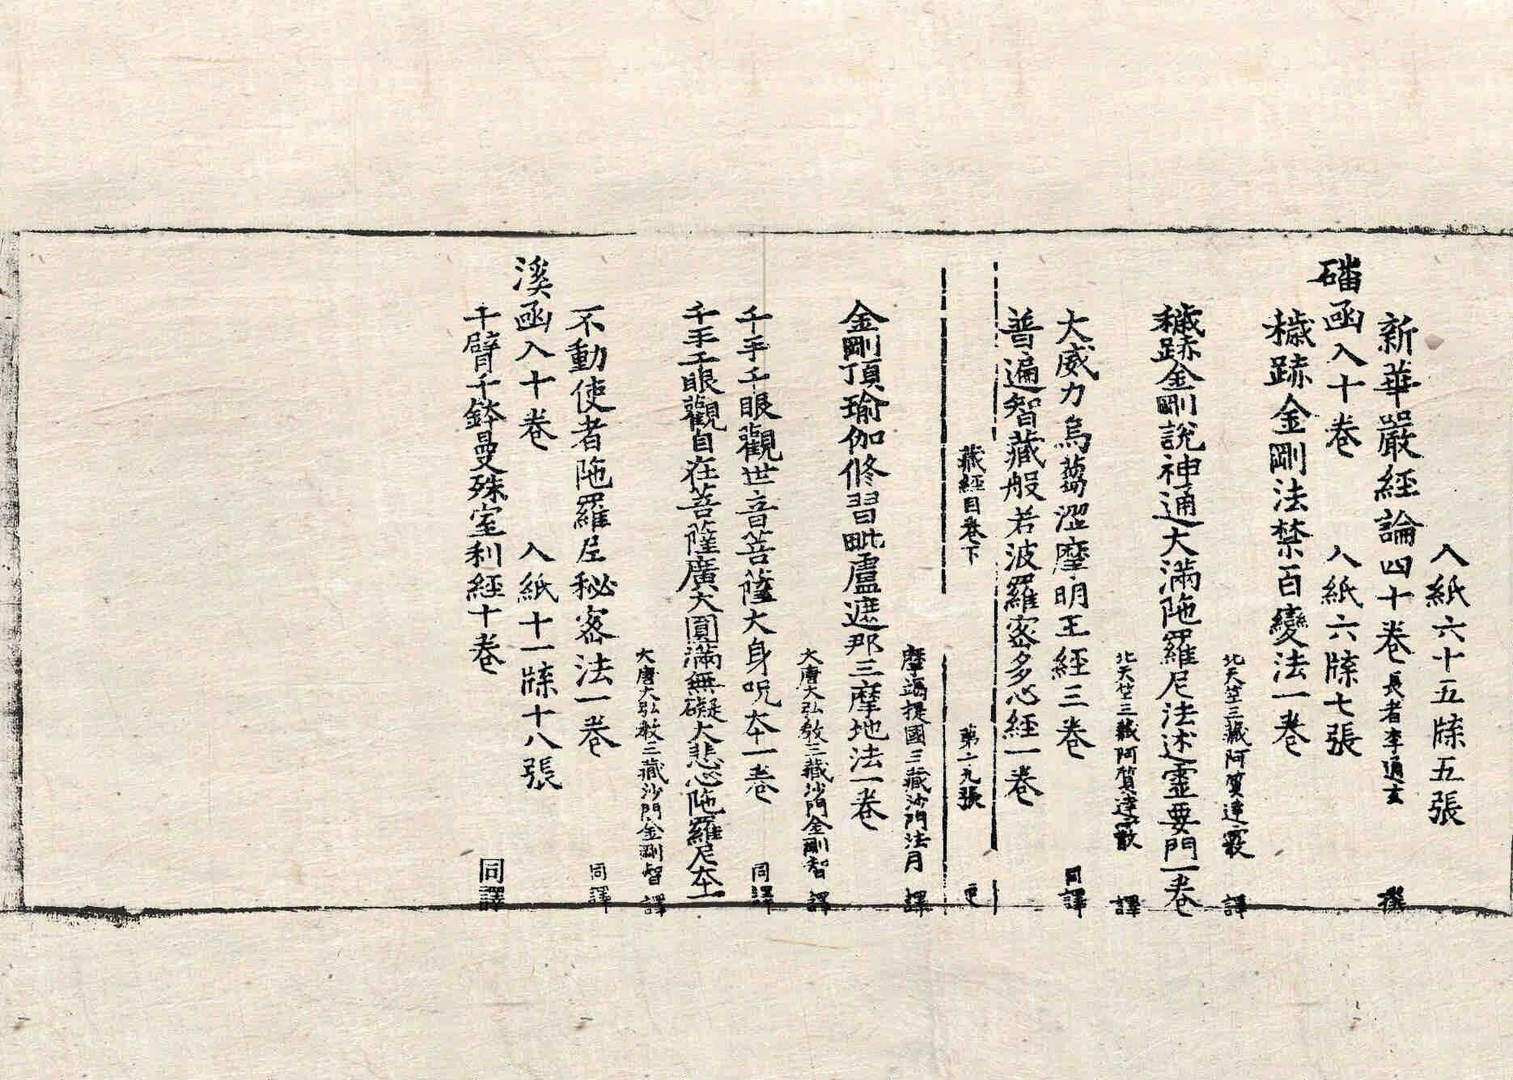 入紙六十五牒五張
新華嚴經論四十卷 長者李通玄 撰
磻函入十卷 入紙六牒七張
穢跡金剛法禁百變法一卷
北天竺三藏阿質達霰 譯
穢跡金剛說神通大滿陁羅尼法述靈要門一卷
北天竺三藏阿質達霰 譯
大威力烏蒭澀摩明王經三卷 同譯
普遍智藏般若波羅蜜多心經一卷
藏經目卷下 第二九張 更
摩竭提國三藏沙門法月 譯
金剛頂瑜伽修習毗盧遮那三摩地法一卷
大唐大弘教三藏沙門金剛智 譯
千手千眼觀世音菩薩大身呪本一卷 同譯
千手千眼觀自在菩薩廣大圓滿無礙大悲心陁羅尼本一
大唐大弘教三藏沙門金剛智 譯
不動使者陁羅尼秘密法一卷 同譯
溪函入十卷 入紙十一牒十八張
千臂千鉢曼殊室利經十卷 同譯